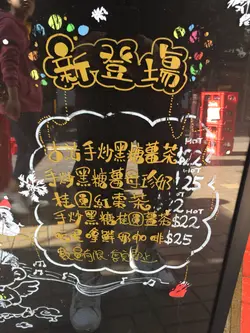 新登場
古法手炒黑糖薑茶 HOT $22
手炒黑糖薑母珍奶 $25
桂圓紅棗茶 HOT
手炒黑糖桂圓薑茶 HOT $22
鮮奶咖啡 $25
數量有限